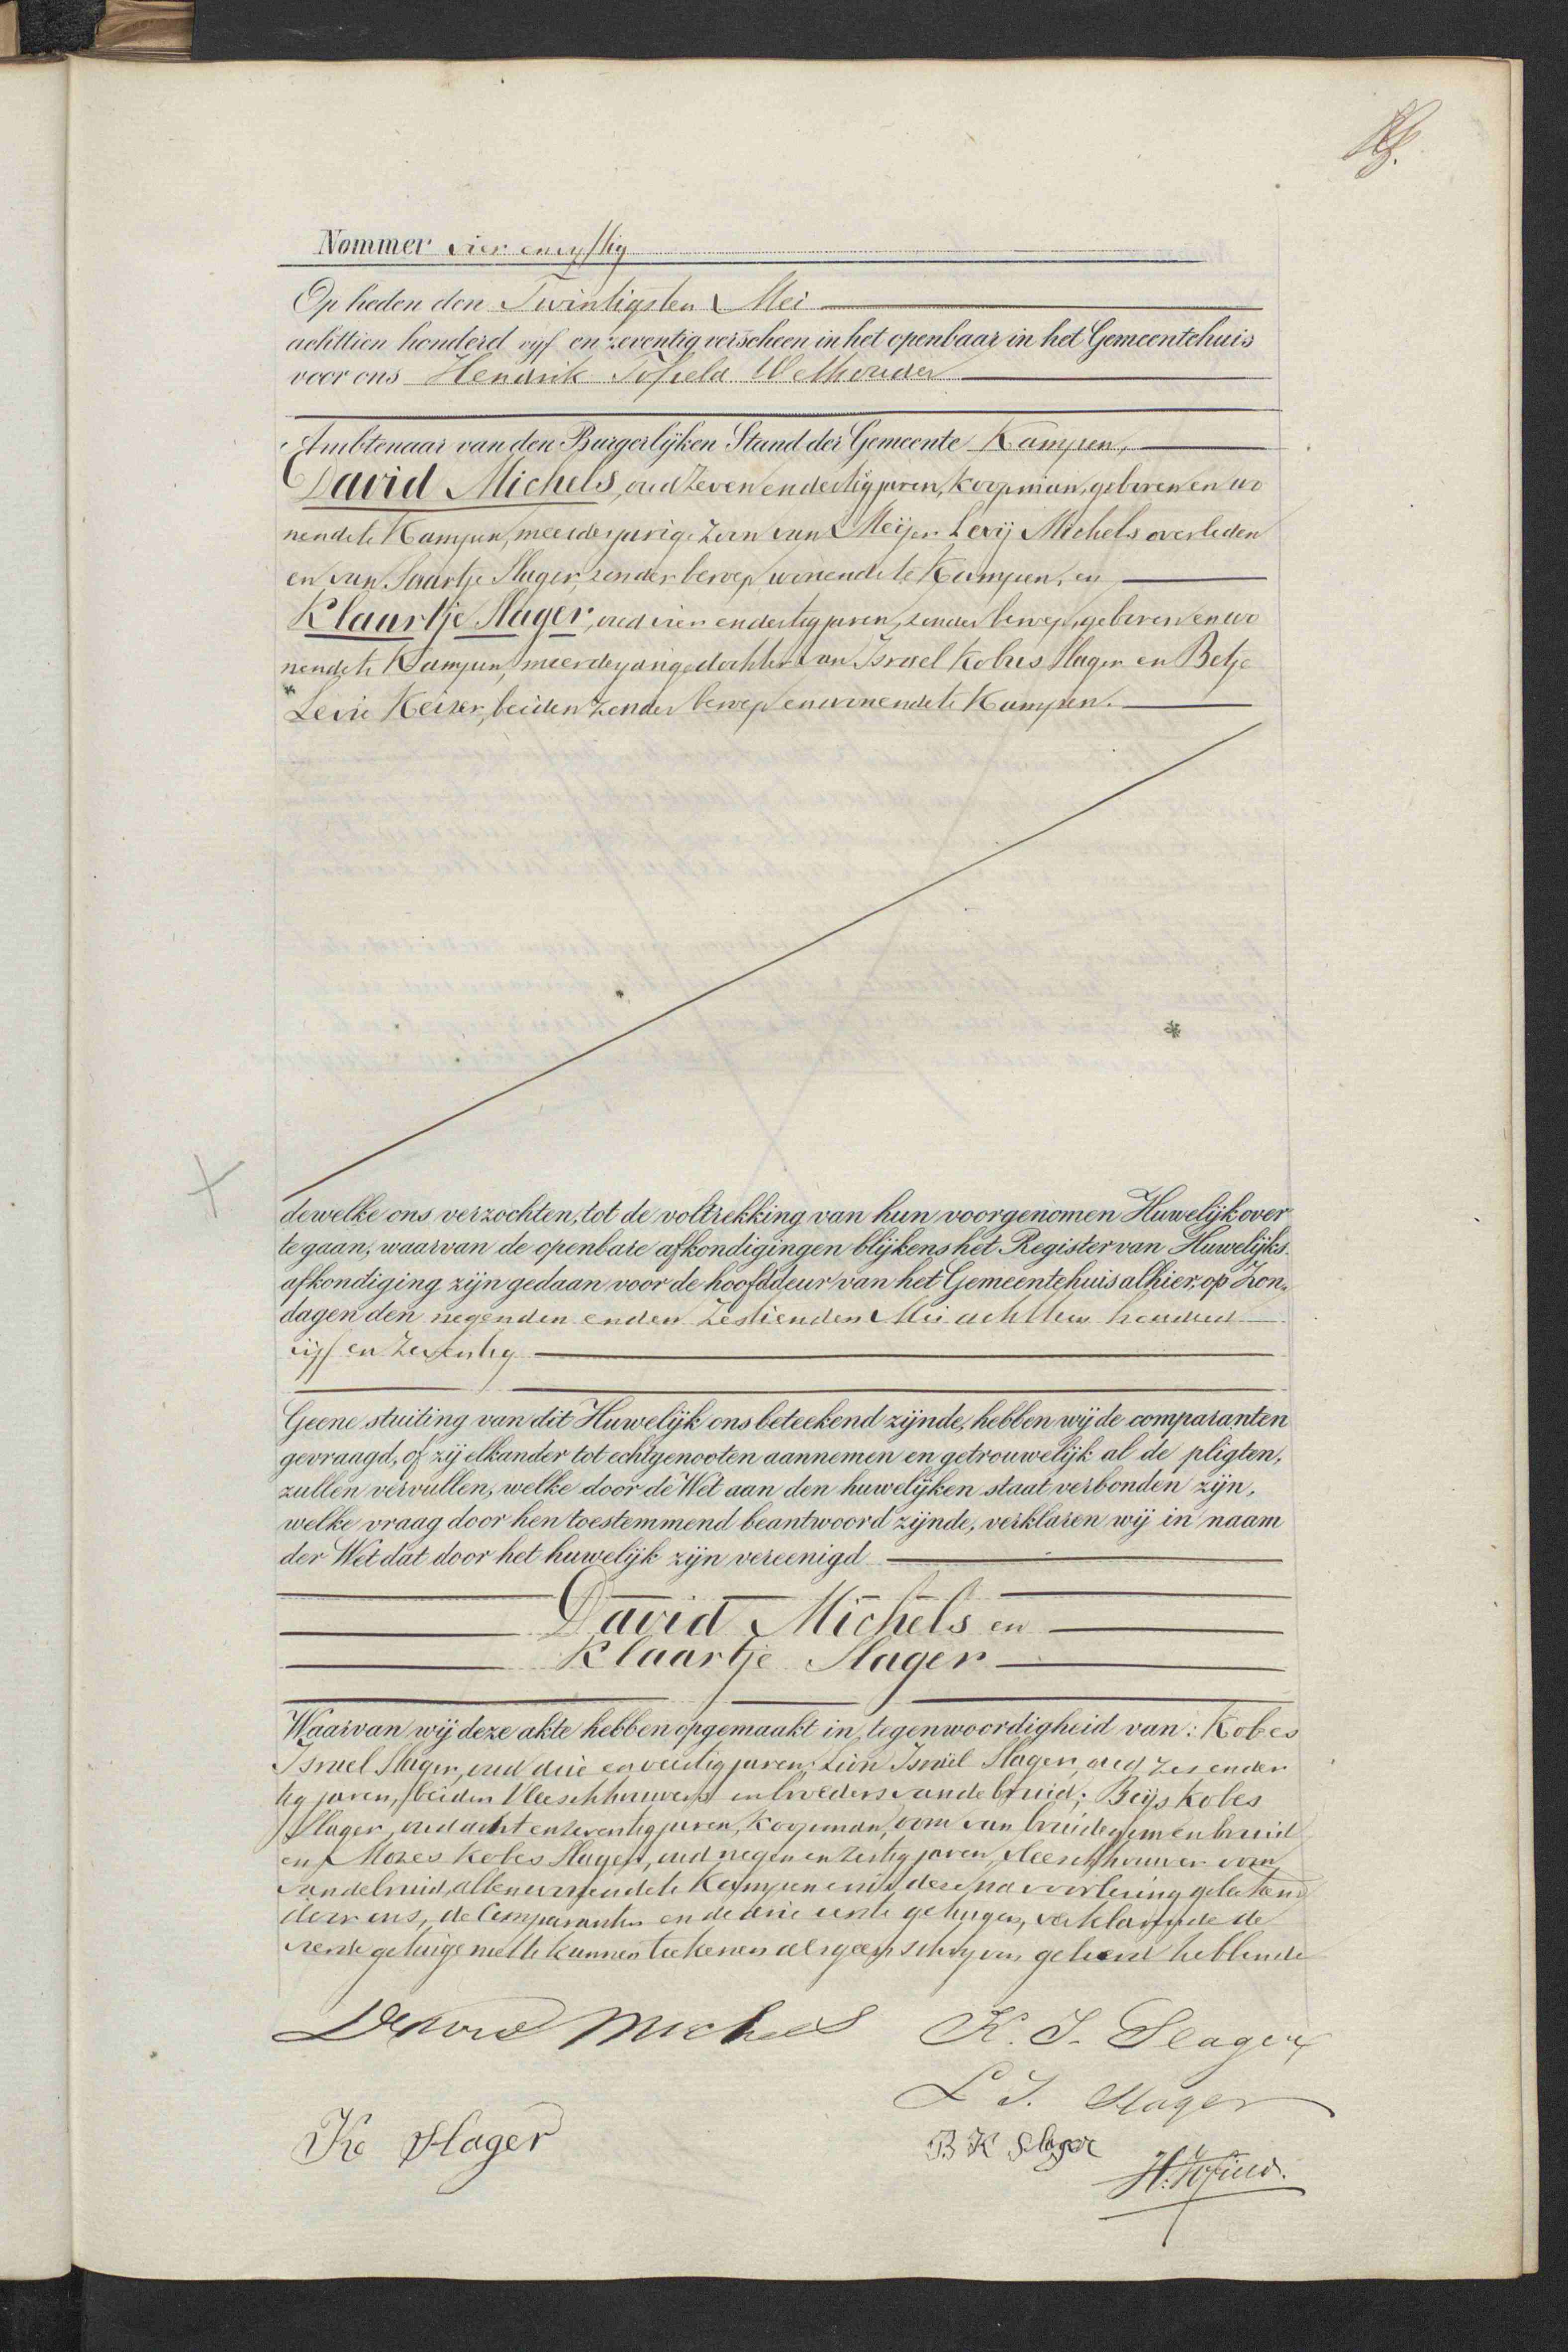 Nommer vier en vyftig
Op heden den Twintigsten Mei
achttien honderd vyf en zeventig verscheen in het openbaar in het Gemeentehuis
voor ons Hendrik Tofield Wethouder
Ambtenaar van den Burgerlijken Stand der Gemeente Kampen,
David Michels, oud zeven en dertig jaren, koopman, geboren en wo
nende te Kampen, meerderjarige zoon van Meijer Levij Michels overleden
en van Saartje Slager, zonder beroep wonende te Kampen, en
Klaartje Slager, oud vier en dertig jaren, zonder beroep, geboren en wo
nende te Kampen, meerderjarige dochter van Israel Kobus Slager en Betje
Levie Keizer, beiden zonder beroep en wonende te Kampen.
dewelke ons verzochten, tot de voltrekking van hun voorgenomen Huwelijk over
te gaan, waarvan de openbare afkondigingen blijkens het Register van Huwelijks.
afkondiging zijn gedaan voor de hoofddeur van het Gemeentehuis alhier, op Zon,
dagen den negenden en den Zestienden Mei achttien honderd
vijf en Zeventig
Geene stuiting van dit Huwelijk ons beteekend zijnde, hebben wij de comparanten
gevraagd, of zij elkander tot echtgenooten aannemen en getrouwelijk al de pligten,
zullen vervullen, welke door de Wet aan den huwelijken staat verbonden zijn,
welke vraag door hen toestemmend beantwoord zijnde, verklaren wij in naam
der Wet dat door het huwelijk zijn vereenigd
David Michels en
Klaartje Slager
Waarvan wij deze akte hebben opgemaakt in tegenwoordigheid van: Kobes
Israel Slager, oud drie en veertig jaren, Leon Israël Slager, oud zes en der
tig jaren, beiden Vleeschhouwers en broeders van de bruid; Beijs Kobes
Slager, oud acht en zeventig jaren, koopman, oom van bruidegom en bruid
en Mozes Kobes Slager, oud negen en zestig jaren, vleeschhouwer oom
van de bruid, allen wonende te Kampen en is deze na voorlezing geteekend
door ons, de Comparanten en de drie eerste getuigen, verklarende de
vierde getuige niet te kunnen teekenen als geen schryven geleerd hebbende
David Michels K. I. Slager
L I. Slager
K Slager B K Slager
H. Tofield.